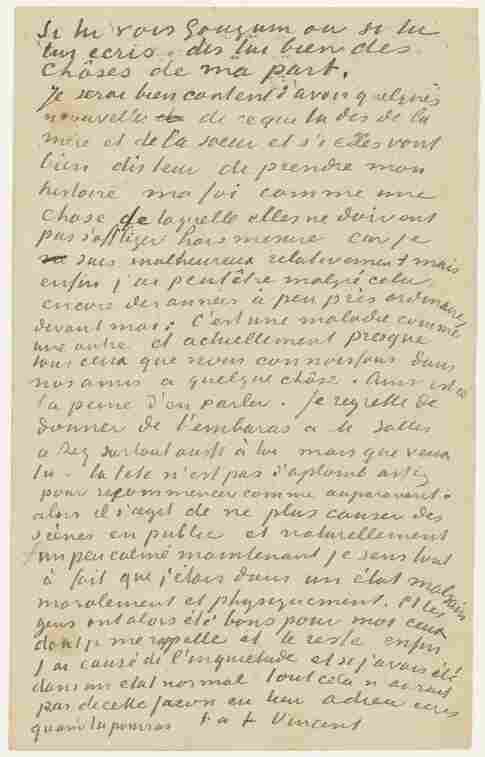 Si tu vois Gauguin ou si tu
lui ecris dis lui bien des
chôses de ma part.
Je serai bien content d'avoir quelques
nouvelles de ce que tu dis de la
mère et de la soeur et si elles vont
bien dis leur de prendre mon
histoire ma foi comme une
chose de laquelle elles ne doivent
pas s'affliger hors mesure car je
suis malheureux relativement mais
enfin j'ai peutêtre malgré cela
encore des années à peu près ordinaires
devant moi. C'est une maladie comme
une autre et actuellement presque
tous ceux que nous connaissons dans
nos amis a quelque chôse. Ainsi est ce
la peine d'en parler. Je regrette de
donner de l'embaras a M. Salles
a Rey surtout aussi à toi mais que veux
tu – la tete n'est pas d'aplomb assez
pour recommencer comme auparavant.
alors il s'agit de ne plus causer des
scènes en public et naturellement
un peu calmé maintenant je sens tout
à fait que j'étais dans un état malsain
moralement et physiquement. Et les
gens ont alors été bons pour moi ceux
dont je me rappelle et le reste enfin
j'ai causé de l'inquietude et si j'avais été
dans un état normal tout cela n'aurait
pas de cette facon eu lieu adieu ecris
quand tu pourras t. a t. Vincent